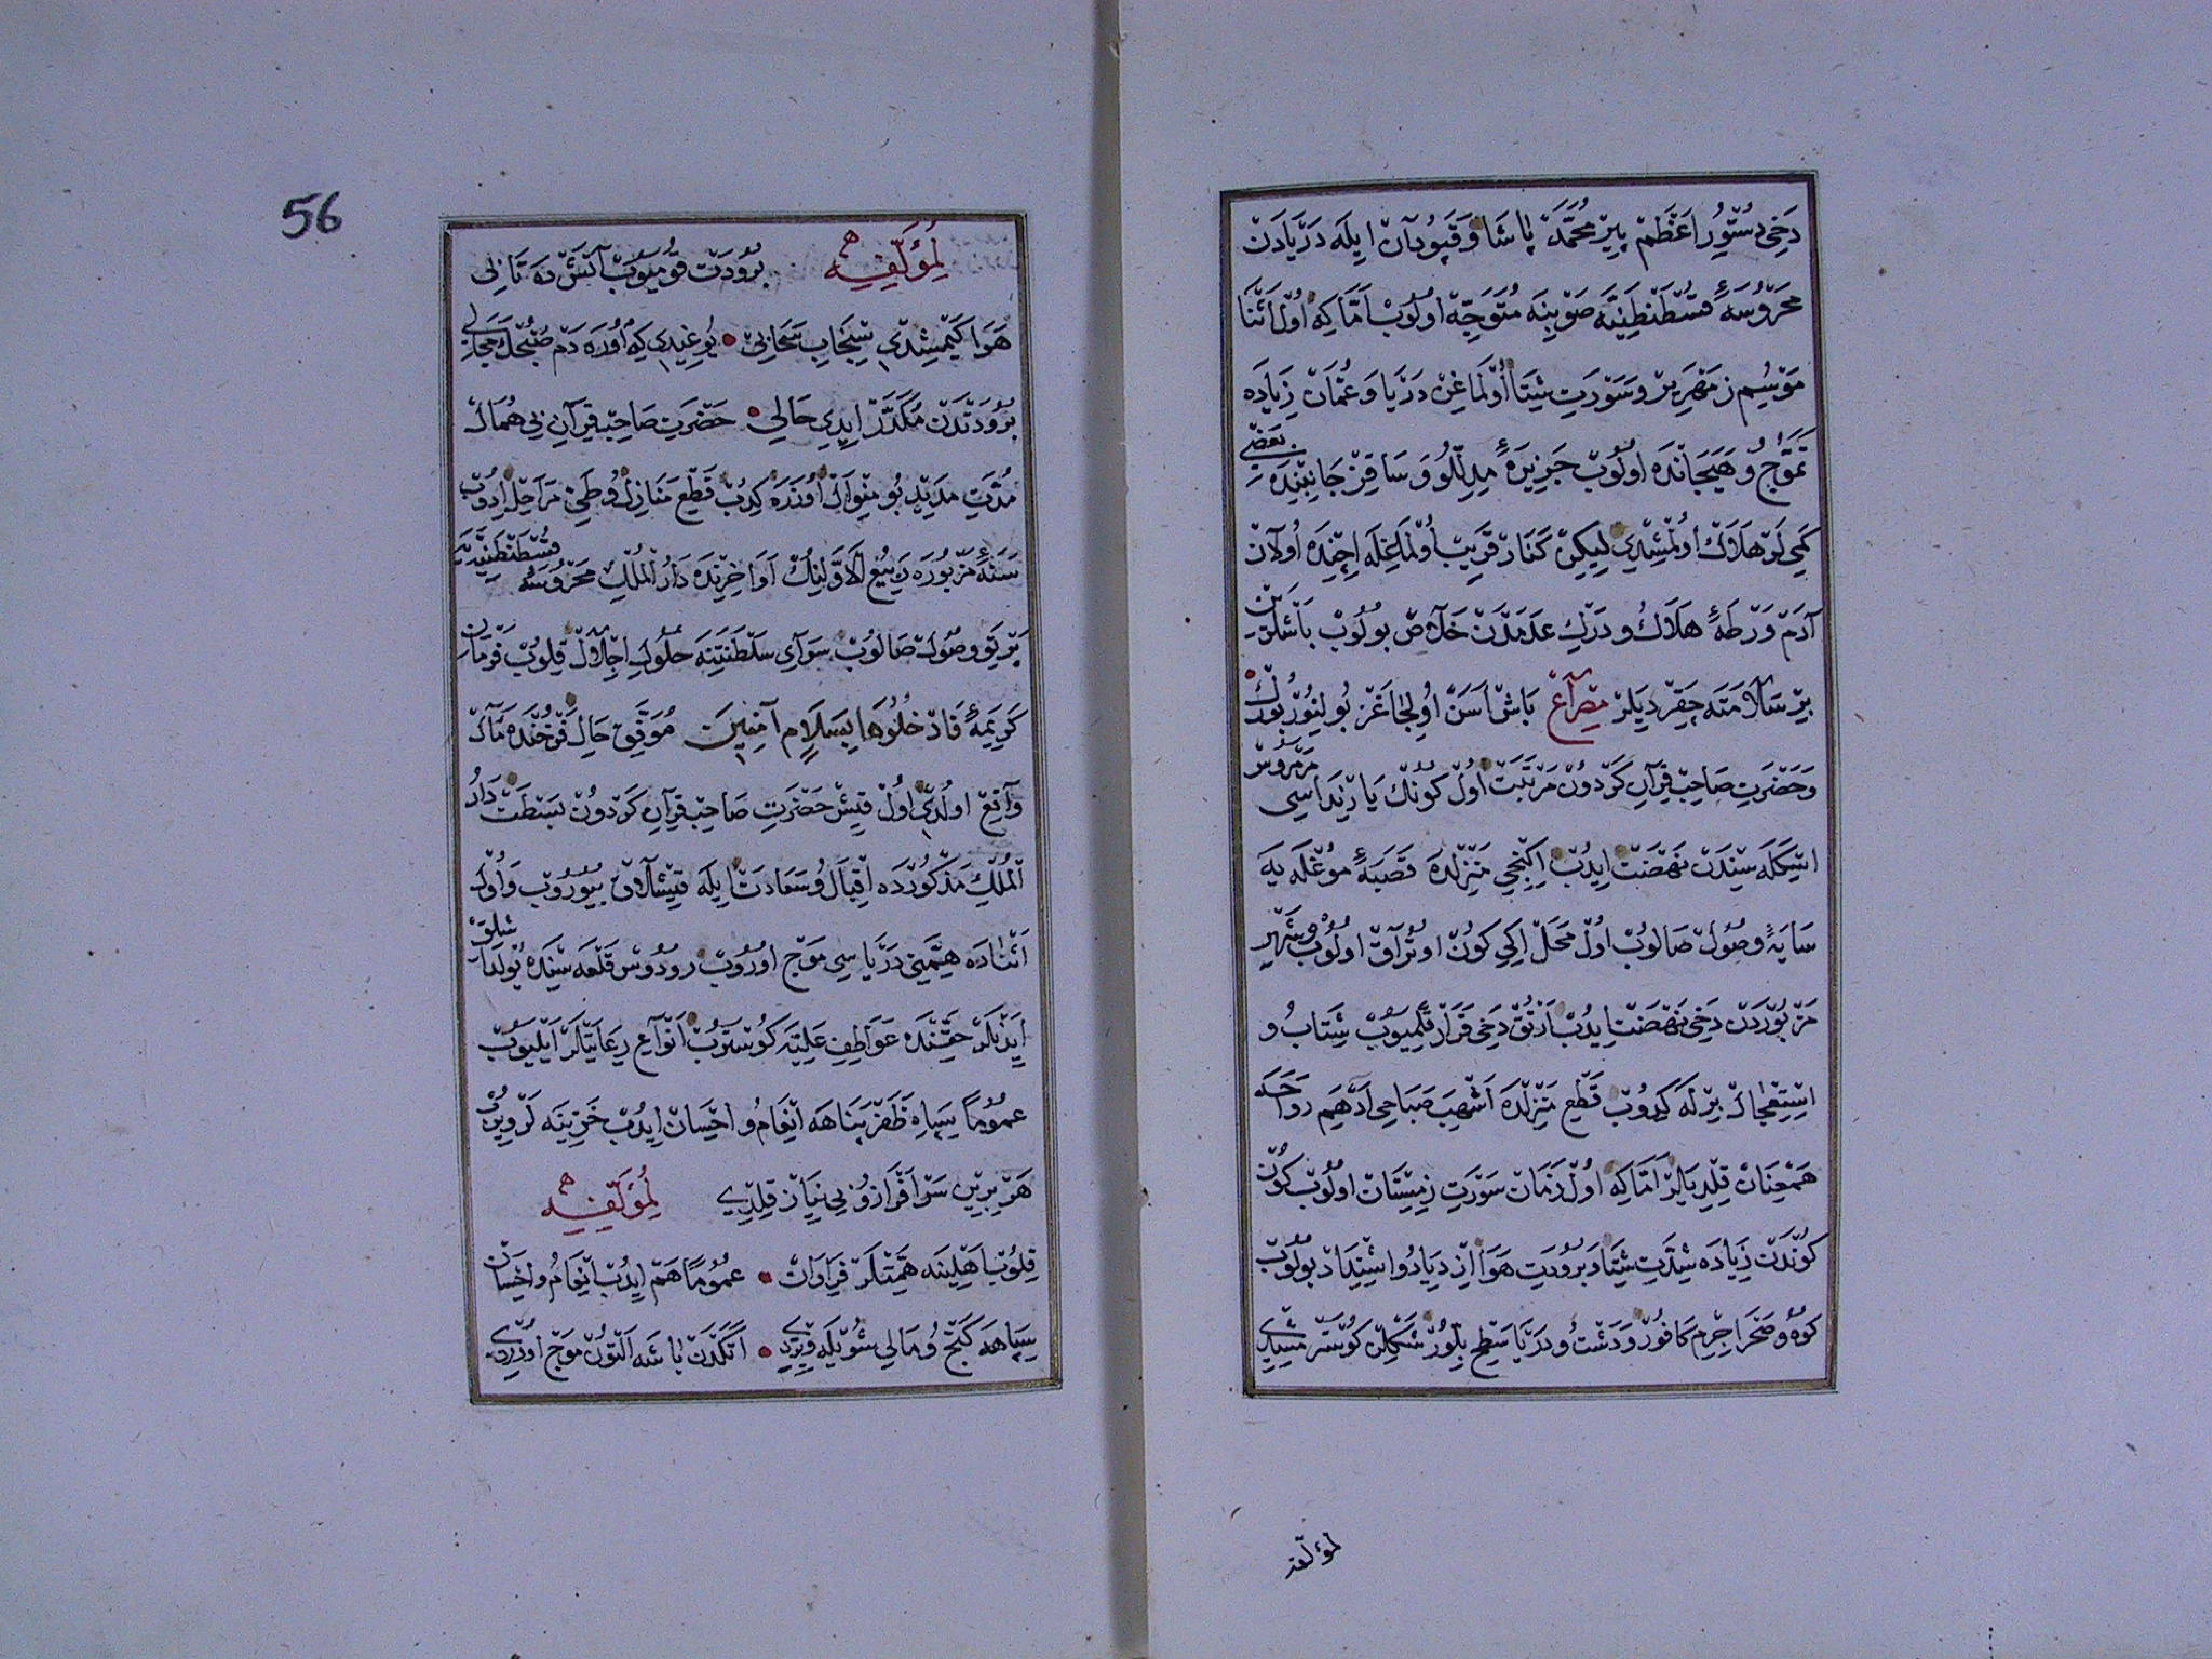 دخی دستور اعظم پیر محمد پاشا و قپودان ایله دریادن
محروسهٔ قسطنطنیه صوبینه متوجه اولوب اما که اول اثنا
موسم زمهریر و سورت شتا اولماغن دریا و عمان زیاده
تموج و هیجانده اولوب جزیرهٔ مدللو و ساقز جانبنده بعضی
کمی لر هلاك اولمشدی لیکن کنار قریب اولماغله اچنده اولان
آدم ورطهٔ هلاك و درك عدمدن خلاص بولوب باشلرین
بیر سلامته چقردیلر مصراع باش اسن اولیجاغز بولینور بورك
و حضرت صاحب قران کردون مرتبت اول کونك یارنداسی مرمروس
اسکله سندن نهضت ایدب اکنجی منزلده قصبهٔ موغله یه
سایهٔ وصول صالوب اول محل ایکی کون اوتراق اولوب و شهر
مزبوردن دخی نهضت ایدب ارتق دخی قرار قلمیوب شتاب و
استعجال برله کدوب قطع منزلده اشهب صباحی ادهم رواحه
همعنان قلدیلر اما که اول زمان سورت زمستان اولوب کون
کوندن زیاده شدت شتا و برودت هوا ازدیاد و اشتداد بولوب
کوه و صحرا جرم کافور و دشت و دریا سطح بلور شکلن کوسترمشیدی
لمؤلفه
56
لمؤلفه برودت قومیوب آتش ده تابی
هوا کیمشدی سنجاب سحابی • یوغیدی که اوره دم صبحك مجالی
برودتدن مکدر ایدی حالی • حضرت صاحب قران بی همال
مدت مدید بو منوال اوزره کدب قطع منازل و طی مراحل ادوب
سنهٔ مزبوره ربیع الاولینك اواخرنده دار الملك محروسهٔ قسطنطنیه یه
پرتو وصول صالوب سرای سلطنتنه حلول اجلال قلوب فرمان
کریمهٔ فادخلوها بسلام آمنین موفق حال فرخنده مآل
واقع اولدی اول قیش حضرت صاحب قران کردون بسطت دار
الملك مذکورده اقبال و سعادت ایله قیشلاق بیوروب و اول
اثناده همتی دریاسی موج اوروب رودوس قلعه سنده یولداشلق
ایدنلر حقنده عواطف علیه کوستروب انواع رعایتلر ایلیوب
عموما سپاه ظفر پناهه انعام و احسان ایدب خزینه لر ویروب
هر برین سرافراز و بی نیاز قلدی لمؤلفه
قلوب اهلینه همتلر فراوان • عموما هم ایدب انعام و احسان
سپاهه کنج و مالی شویله ویردی • اتکدن باشه التون موج اوردی